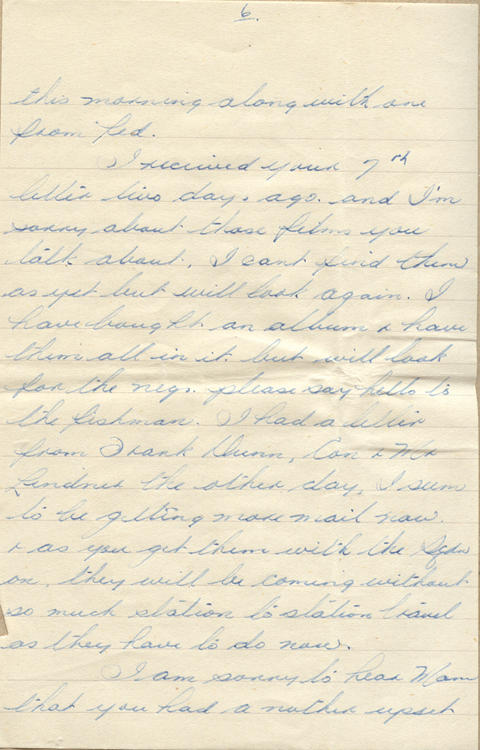 6.
this morning along with one
from Red.
I received your 7th
letter two days ago. and I'm
sorry about those films you
talk about, I cant find them
as yet but will look again. I
have bought an album & have
them all in it. but will look
for the negs. please say hello to
the fishman. I had a letter
from Frank Dunn, Con & Mr
Lindner the other day, I seem
to be getting more mail now.
& as you get them with the Sqdn
on, they will be coming without
so much station to station travel
as they have to do now.
I am sorry to hear Mam
that you had a nother upset